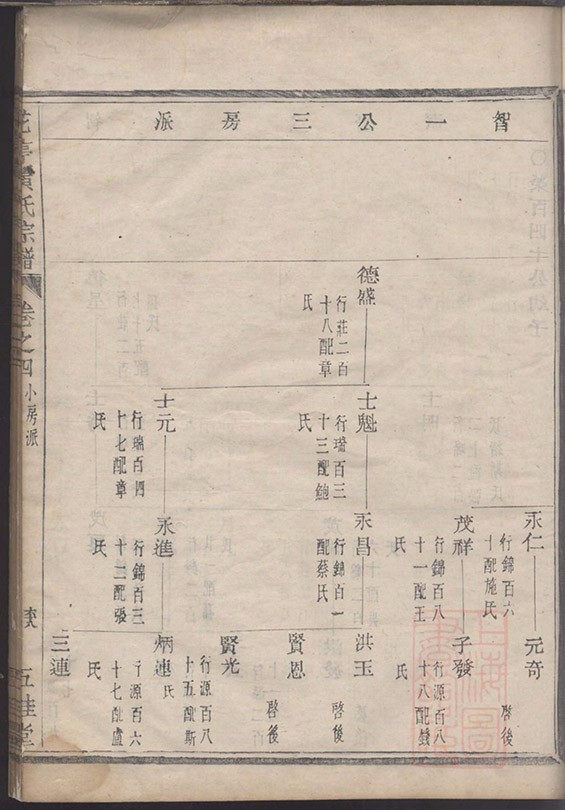 智一公三房派
永仁
行錦百六
十配施氏
元奇
啓後
茂祥
行錦百八
十一配王
氏
子發
行源百八
十八配錢
氏
德榮
行莊二百
十八配章
氏
士魁
行瑞百三
十三配鮑
氏
永昌
行錦百一
配蔡氏
洪玉
啓後
賢恩
啓後
賢光
士元
行瑞百四
十七配章
氏
永進
行錦百三
十二配張
氏
炳連
行源百八
十五配斯
氏
三連
行源百六
十七配盧
氏
氏宗譜
卷之四
小房派
五桂堂